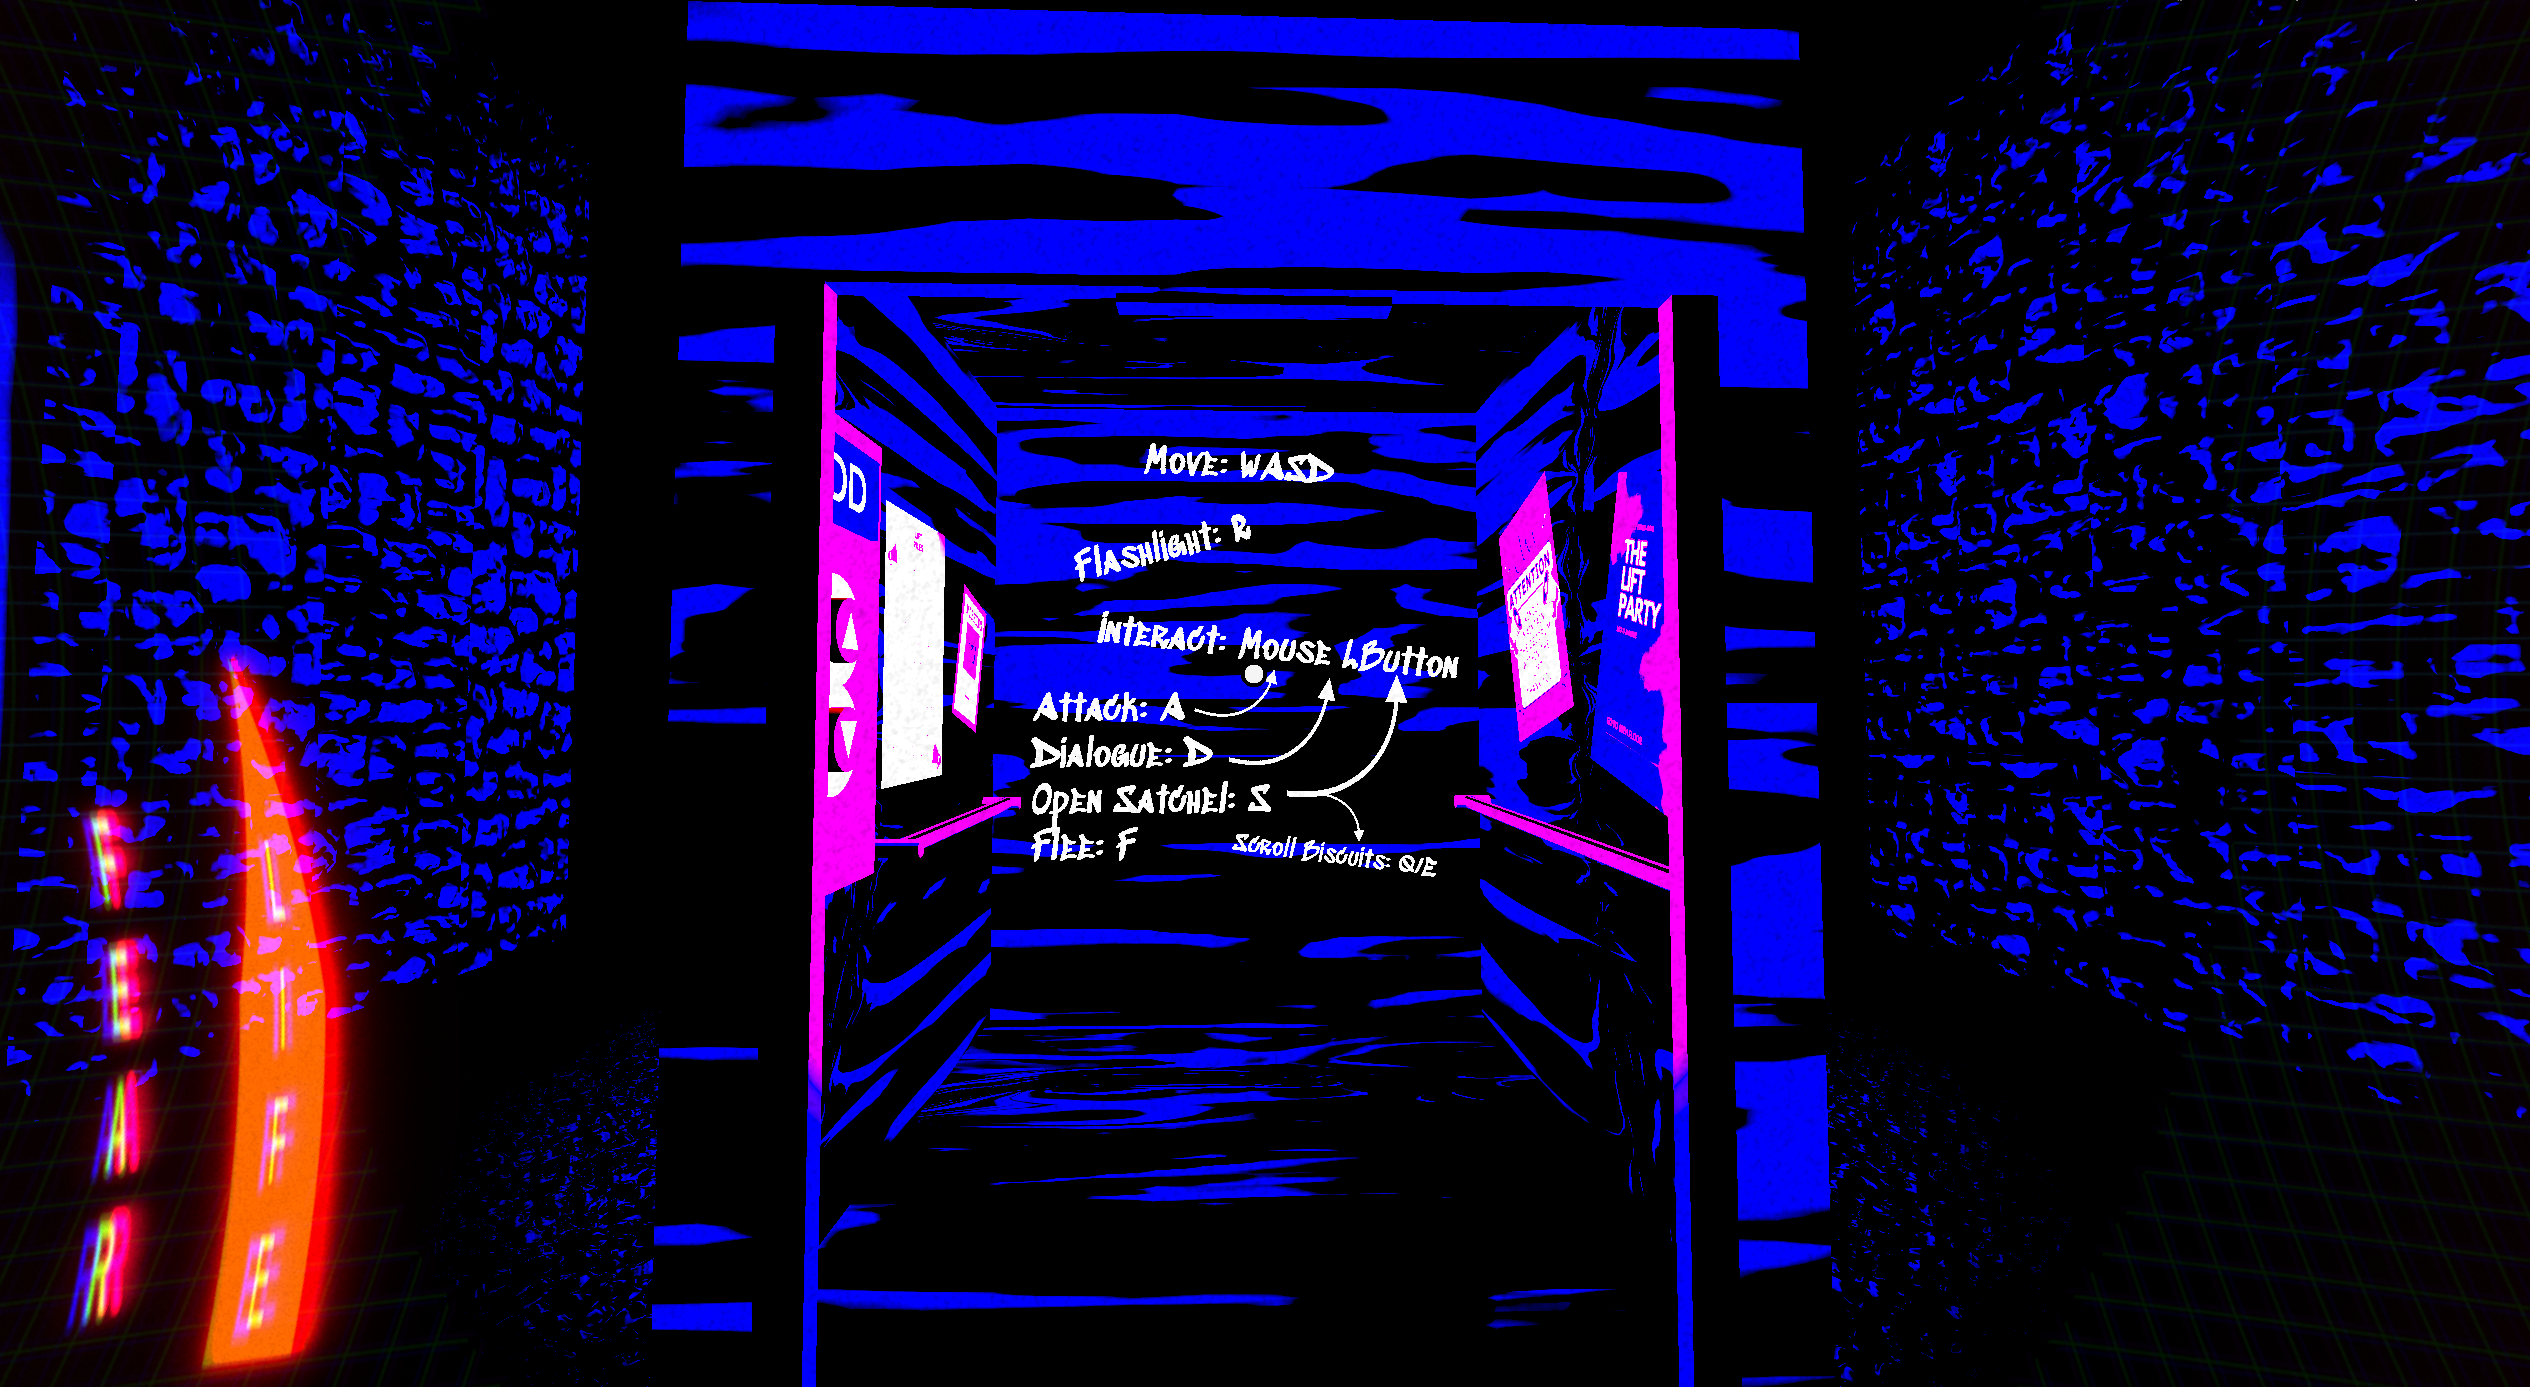 Move: WASD
Flashlight: R
Interact: Mouse LButton
Attack: A
Dialogue: D
Open Satchel: S
Flee: F
Scroll Biscuits: Q/E
FEAR
LIFE
OD
ATTENTION
THE
LIFT
PARTY